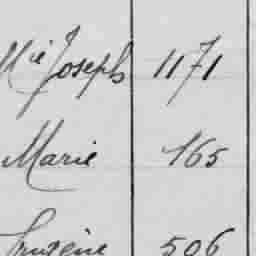 Mie Joseph 1171
Marie 165
506